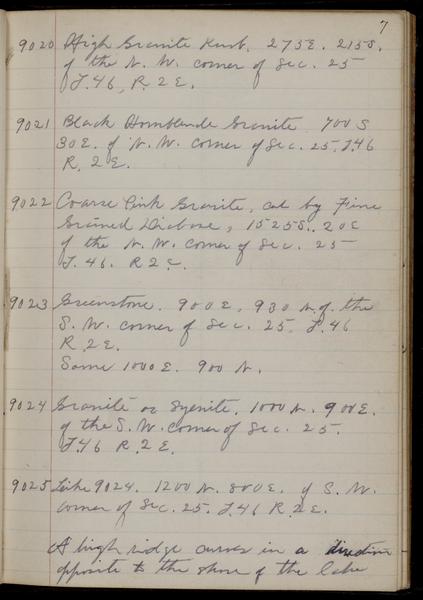 7
9020 High Granite Knob. 275E. 215S.
of the N. W. corner of Sec. 25
T.46, R. 2 E.
9021 Black Hornblende Granite 700 S
30E. of N. W. corner of Sec. 25. T.46
R. 2 E.
9022 Coarse Pink Granite, cut by Fine
Grained Diabase, 1525S. 20E
of the N. W. corner of Sec. 25
T. 46. R 2 E.
9023 Greenstone. 900E, 930 N. of the
S. W. corner of Sec. 25. T. 46
R. 2 E.
Same 1000 E. 900 N.
9024 Granite or Syenite. 1000 N. 900E.
of the S. W. corner of Sec. 25.
T.46 R. 2 E.
9025 Like 9024. 1200 N. 800E. of S. W.
corner of Sec. 25. T.46 R. 2 E.
A high ridge curves in a direction
opposite to the shore of the lake